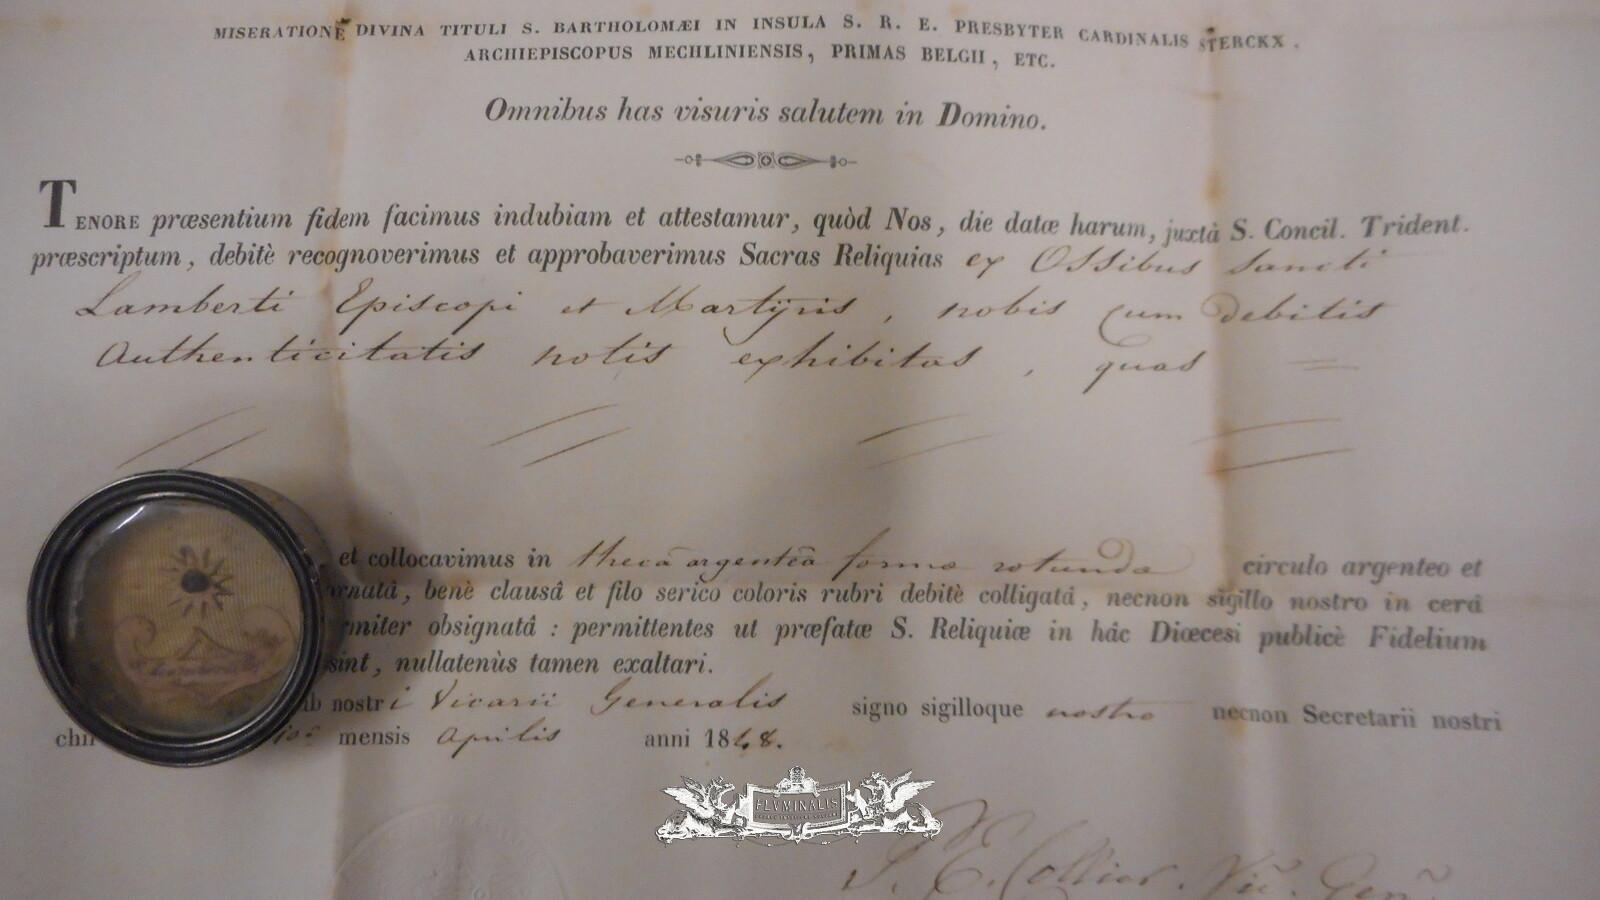 MISERATIONE DIVINA TITULI S. BARTHOLOMÆI IN INSULA S. R. E. PRESBYTER CARDINALIS STERCKX.
ARCHIEPISCOPUS MECHLINIENSIS, PRIMAS BELGII, ETC.
Omnibus has visuris salutem in Domino.
TENORE præsentium fidem facimus indubiam et attestamur, quòd Nos, die datæ harum, juxtà S. Concil. Trident.
præscriptum, debitè recognoverimus et approbaverimus Sacras Reliquias ex Ossibus Sancti
Lamberti Episcopi et Martÿris, nobis cum debitis
Authenticitatis notis exhibitas, quas =
et collocavimus in thecâ argenteâ formæ rotundæ circulo argenteo et
rnatâ, benè clausâ et filo serico coloris rubri debitè colligatâ, necnon sigillo nostro in cerâ
rmiter obsignatâ : permittentes ut præfatæ S. Reliquiæ in hâc Diœcesi publicè Fidelium
sint, nullatenùs tamen exaltari.
ub nostri Vicarii Generalis signo sigilloque nostro necnon Secretarii nostri
chir mensis Aprilis anni 1848.
FLVMINALIS
J. E. Collier. Vic. Gen